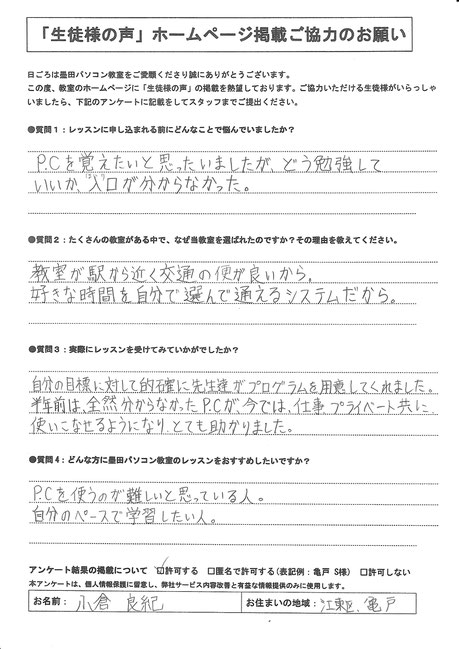 「生徒様の声」ホームページ掲載ご協力のお願い
日ごろは墨田パソコン教室をご愛顧くださり誠にありがとうございます。
この度、教室のホームページに「生徒様の声」の掲載を熱望しております。ご協力いただける生徒様がいらっしゃ
いましたら、下記のアンケートに記載をしてスタッフまでご提出ください。
●質問１：レッスンに申し込まれる前にどんなことで悩んでいましたか？
P.Cを覚えたいと思ったいましたが、どう勉強して
いいか、入口が分からなかった。
●質問２：たくさんの教室がある中で、なぜ当教室を選ばれたのですか？その理由を教えてください。
教室が駅から近く交通の便が良いから。
好きな時間を自分で選んで通えるシステムだから。
●質問３：実際にレッスンを受けてみていかがでしたか？
自分の目標に対して的確に先生達がプログラムを用意してくれました。
半年前は、全然分からなかったP.Cが、今では、仕事プライベート共に、
使いこなせるようになり、とても助かりました。
●質問４：どんな方に墨田パソコン教室のレッスンをおすすめしたいですか？
P.Cを使うのが難しいと思っている人。
自分のペースで学習したい人。
アンケート結果の掲載について ☑許可する □匿名で許可する(表記例：亀戸 S様) □許可しない
本アンケートは、個人情報保護に留意し、弊社サービス内容改善と有益な情報提供のみに使用します。
お名前： 小倉 良紀 お住まいの地域： 江東区、亀戸